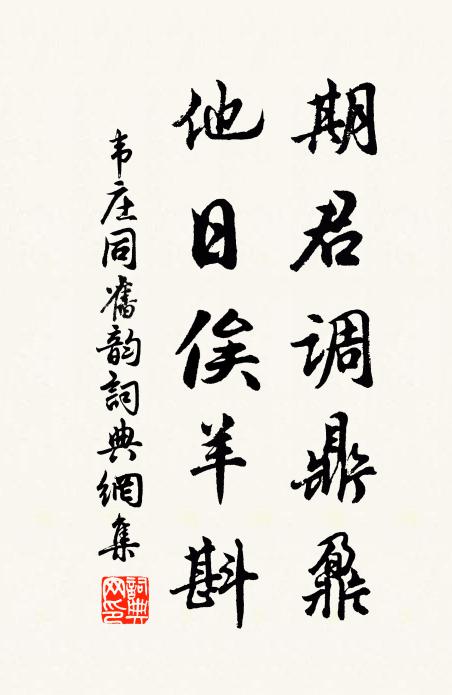 期君调鼎鼐
他日俟羊斟
韦庄同舊韵詞典網集
詞典网印